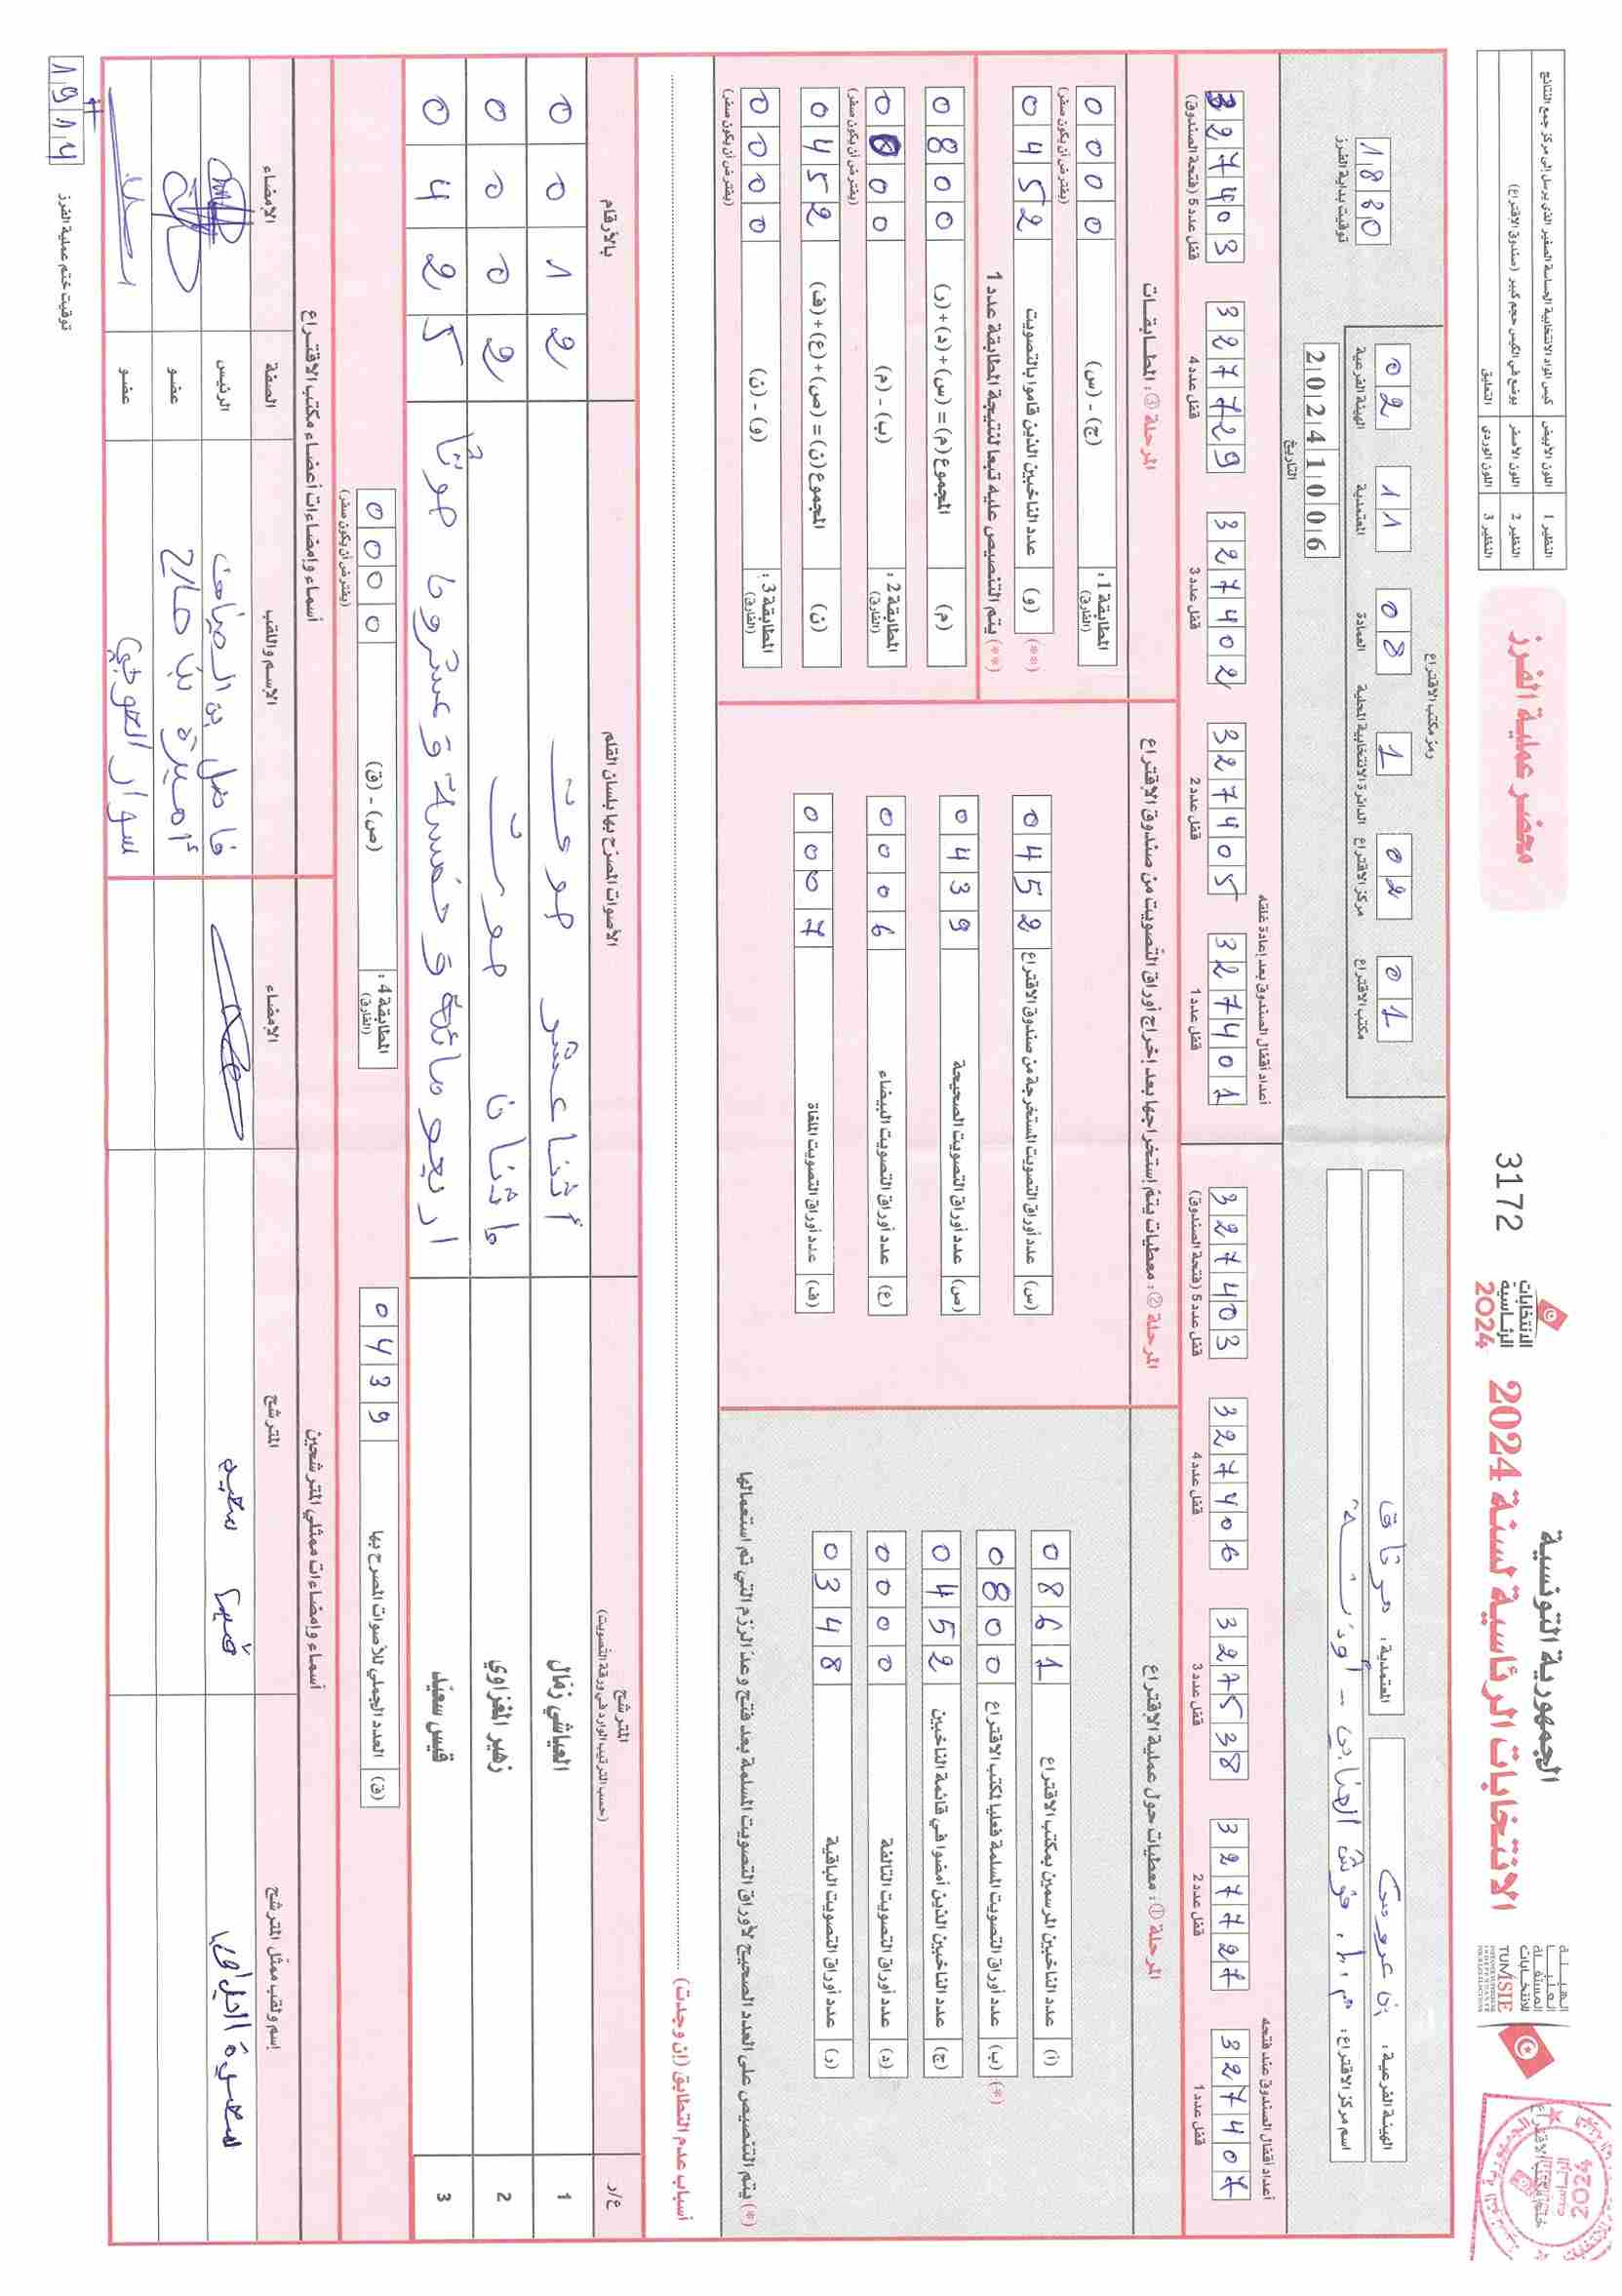 الجمهورية التونسية
الانتخابات الرئاسية لسنة 2024
الانتخابات
الرئاسية
2024
3172
محضر عملية الفرز
الهيئة
العليا
المستقلة
للانتخابات
TUNISIE
ختم مكتب الاقتراع
النظير 1 اللون الأبيض كيس المواد الانتخابية الحساسة الصغير الذي يرسل إلى مركز جمع النتائج
النظير 2 اللون الأصفر يوضع في الكيس حجم كبير (صندوق الاقتراع)
النظير 3 اللون الوردي التعليق
الهيئة الفرعية: بن عروس
المعتمدية: مرناق
اسم مركز الاقتراع:
رمز مكتب الاقتراع
02 الهيئة الفرعية
11 المعتمدية
08 العمادة
1 الدائرة الانتخابية المحلية
02 مركز الاقتراع
01 مكتب الاقتراع
20241006
التاريخ
توقيت بداية الفرز
أعداد أقفال الصندوق عند فتحه
327407 قفل عدد 1
327727 قفل عدد 2
327538 قفل عدد 3
327406 قفل عدد 4
327403 قفل عدد 5 (فتحة الصندوق)
أعداد أقفال الصندوق بعد إعادة غلقه
327401 قفل عدد 1
327405 قفل عدد 2
327402 قفل عدد 3
327729 قفل عدد 4
327403 قفل عدد 5 (فتحة الصندوق)
المرحلة ①: معطيات حول عملية الاقتراع
(أ) عدد الناخبين المرسمين بمكتب الاقتراع 0861
(*) (ب) عدد أوراق التصويت المسلمة فعليا لمكتب الاقتراع 0800
(ج) عدد الناخبين الذين أمضوا في قائمة الناخبين 0452
(د) عدد أوراق التصويت التالفة 0000
(ر) عدد أوراق التصويت الباقية 0348
(*) يتم التنصيص على العدد الصحيح لأوراق التصويت المسلمة بعد فتح وعد الرزم التي تم استعمالها
المرحلة ②: معطيات يتم إستخراجها بعد إخراج أوراق التصويت من صندوق الاقتراع
(س) عدد أوراق التصويت المستخرجة من صندوق الاقتراع 0452
(ص) عدد أوراق التصويت الصحيحة 0439
(ع) عدد أوراق التصويت البيضاء 0006
(ف) عدد أوراق التصويت الملغاة 0007
المرحلة ③: المطابقات
المطابقة 1: (الفارق) (ج) - (س) 0000
(يفترض أن يكون صفر)
(**) (و) عدد الناخبين الذين قاموا بالتصويت 0452
(**) يتم التنصيص عليه تبعا لنتيجة المطابقة عدد 1
(م) المجموع (م) = (س) + (د) + (ر) 0800
المطابقة 2: (الفارق) (ب) - (م) 0000
(يفترض أن يكون صفر)
(ن) المجموع (ن) = (ص) + (ع) + (ف) 0452
المطابقة 3: (الفارق) (و) - (ن) 0000
(يفترض أن يكون صفر)
أسباب عدم التطابق (إن وجدت)
ع/ر المترشح (حسب الترتيب الوارد في ورقة التصويت) الأصوات المصرح بها بلسان القلم بالأرقام
1 العياشي زمال أثنا عشر صوت 0012
2 زهير المغزاوي 0002
3 قيس سعيّد اربعو مائة و خمسة و عشرون صوتا 0425
(ق) العدد الجملي للأصوات المصرح بها 0439
المطابقة 4: (الفارق) (ص) - (ق) 0000
(يفترض أن يكون صفر)
أسماء وإمضاءات ممثلي المترشحين
إسم ولقب ممثل المترشح المترشح الإمضاء
قيس سعيد
أسماء وإمضاءات أعضاء مكتب الاقتراع
الإسم واللقب الصفة الإمضاء
الرئيس
أميرة بن صالح عضو
عضو
1914 توقيت ختم عملية الفرز